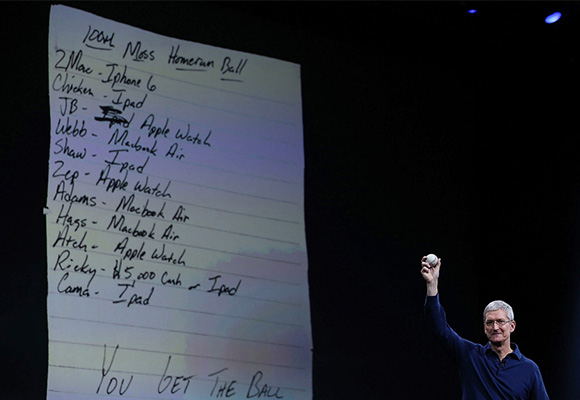 100th Moss Homerun Ball
2Mac - Iphone 6
Chicken - Ipad
JB - Ipad Apple Watch
Webb - Macbook Air
Shaw - Ipad
Zep - Apple Watch
Adams - Macbook Air
Hags - Macbook Air
Atch - Apple Watch
Ricky - $5,000 Cash or Ipad
Cama - Ipad
YOU GET THE BALL